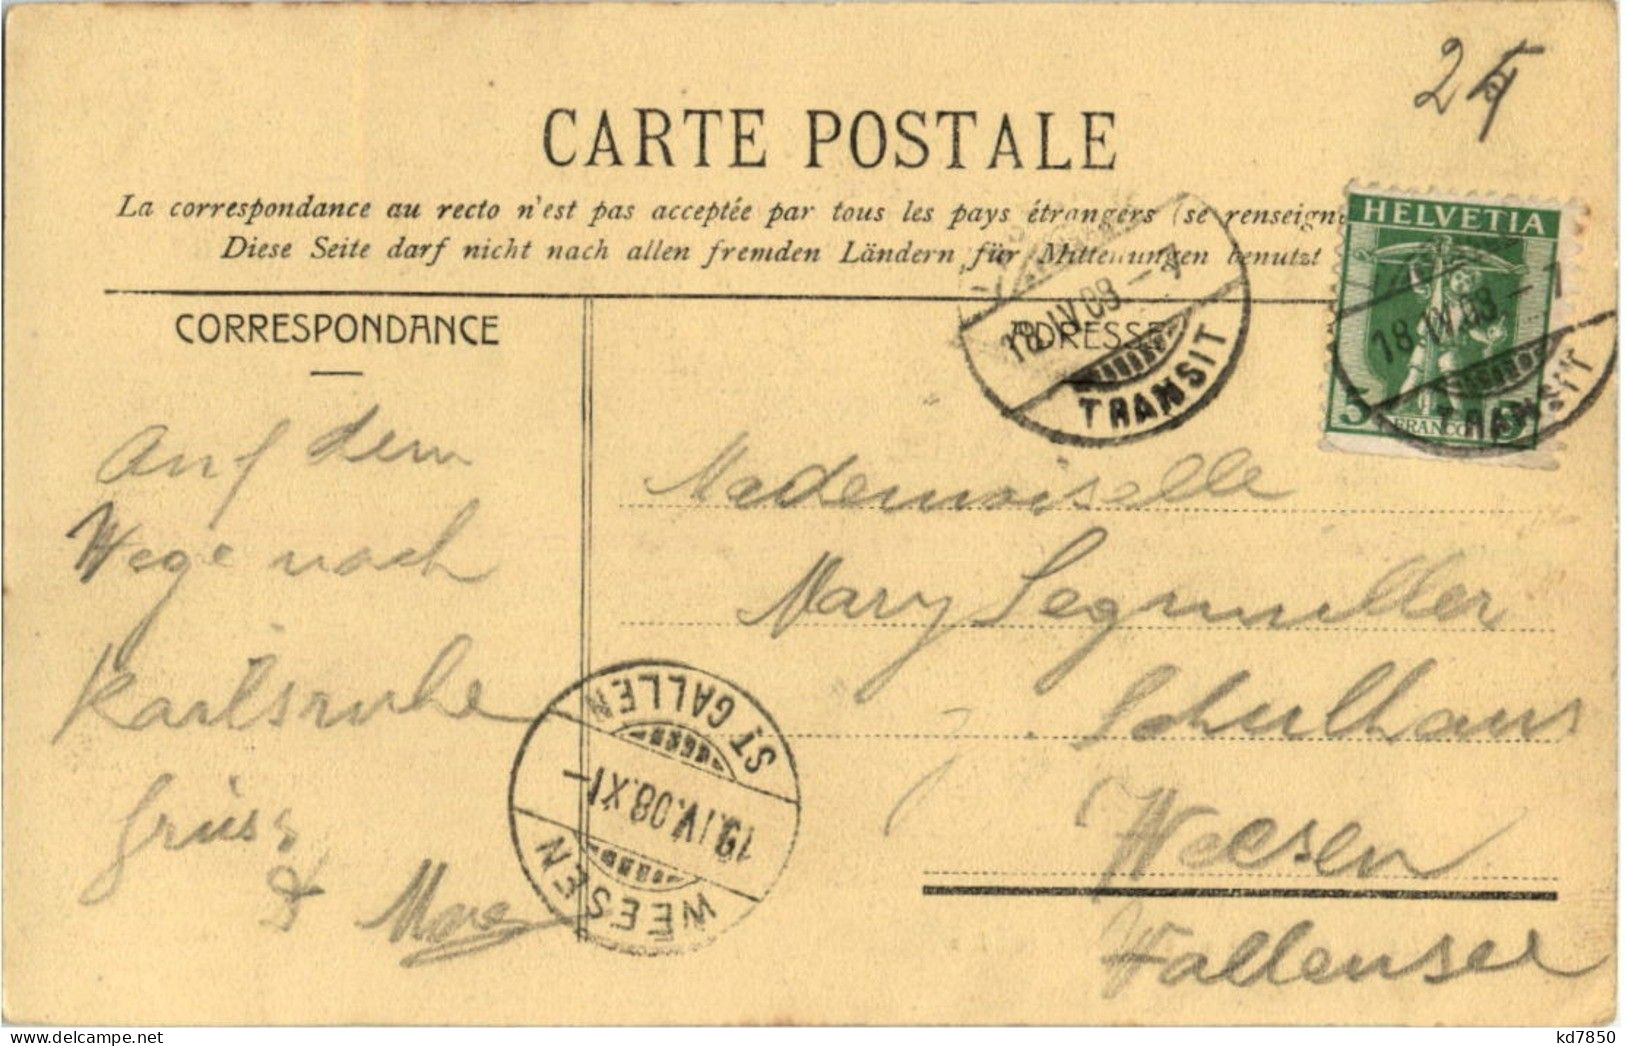 25
CARTE POSTALE
La correspondance au recto n'est pas acceptée par tous les pays étrangers (se renseign
Diese Seite darf nicht nach allen fremden Ländern für Mitteilungen benutzt
HELVETIA
5 FRANCO 5
18.IV.08.–7
TRANSIT
18.IV.08–7
TRANSIT
CORRESPONDANCE
ADRESSE
Auf dem
Wege nach
Karlsruhe
Grüsse
&
Mademoiselle
Mary Segmüller
Schulhaus
Weesen
Wallensee
ST GALLEN
19.IV.08.XI–
WEESEN
kd7850